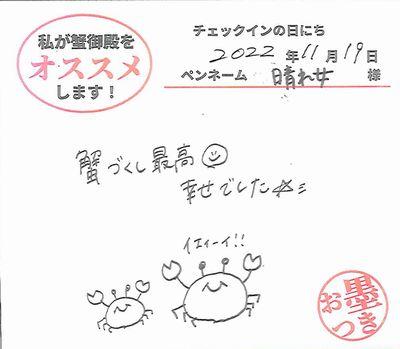 私が蟹御殿を
オススメ
します！
チェックインの日にち
2022年11月19日
ペンネーム 晴れ女 様
蟹づくし最高
幸せでした
イエィーイ!!
お墨つき